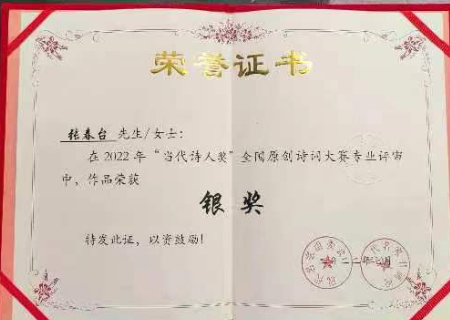 荣誉证书
张春台 先生/女士：
在2022年“当代诗人奖”全国原创诗词大赛专业评审
中，作品荣获
银奖
特发此证，以资鼓励！